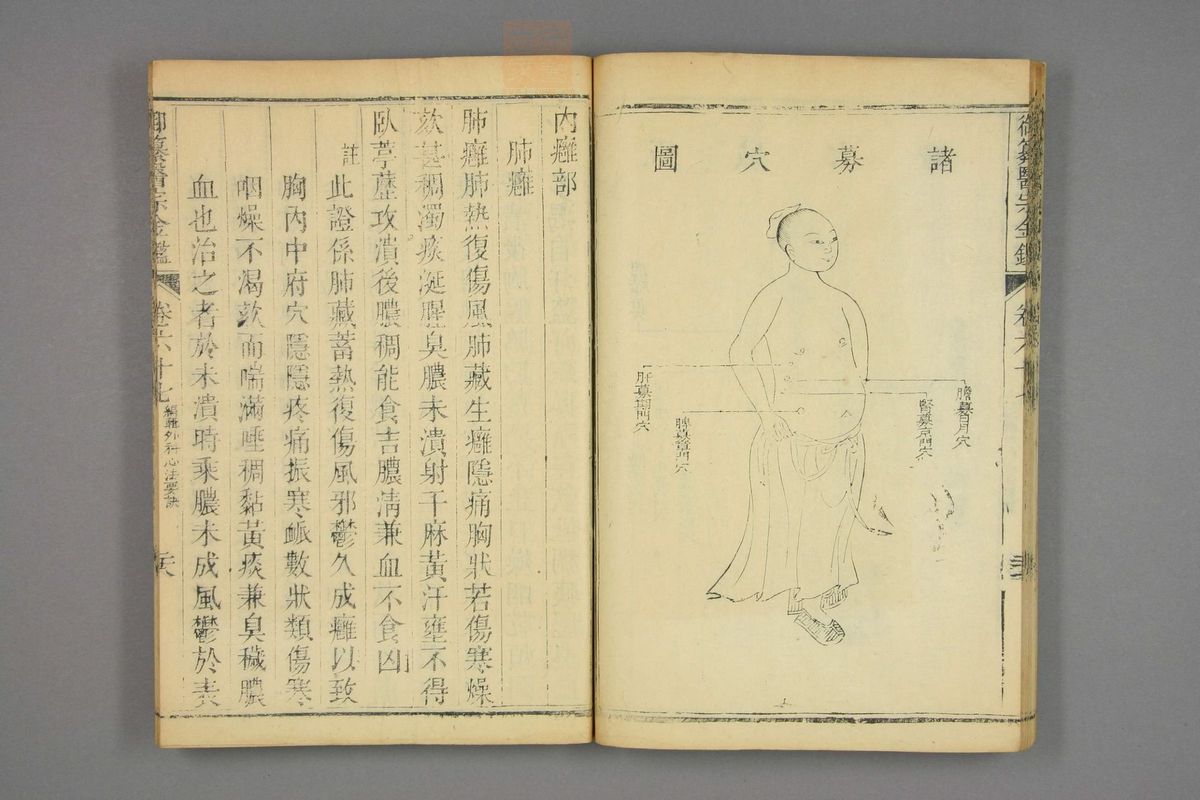 御纂醫宗金鑑
卷六十七
諸募穴圖
膽募日月穴
腎募京門穴
肝募期門穴
脾募章門穴
內癰部
肺癰
肺癰肺熱復傷風肺藏生癰隱痛胸狀若傷寒燥
欬甚稠濁痰涎腥臭膿未潰射干麻黃汗壅不得
臥葶藶攻潰後膿稠能食吉膿清兼血不食凶
註
此證係肺藏蓄熱復傷風邪鬱久成癰以致
胸內中府穴隱隱疼痛振寒脈數狀類傷寒
咽燥不渴欬而喘滿唾稠黏黃痰兼臭穢膿
血也治之者於未潰時乘膿未成風鬱於表
御纂醫宗金鑑
卷六十七
編輯外科心法要訣